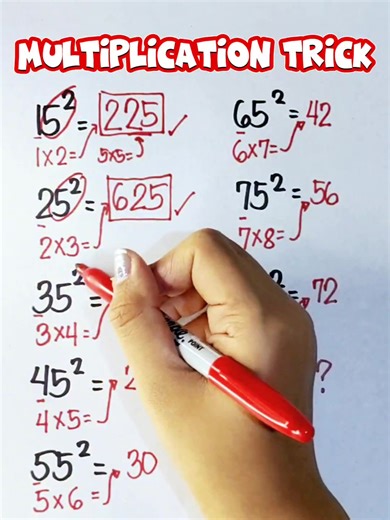 MULTIPLICATION TRICK
15² = 225
1x2= 5x5=
25² = 625
2x3=
35² =
3x4=
45² = 2
4x5=
55² = 30
5x6=
65² = 42
6x7=
75² = 56
7x8=
² = 72
?
POINT